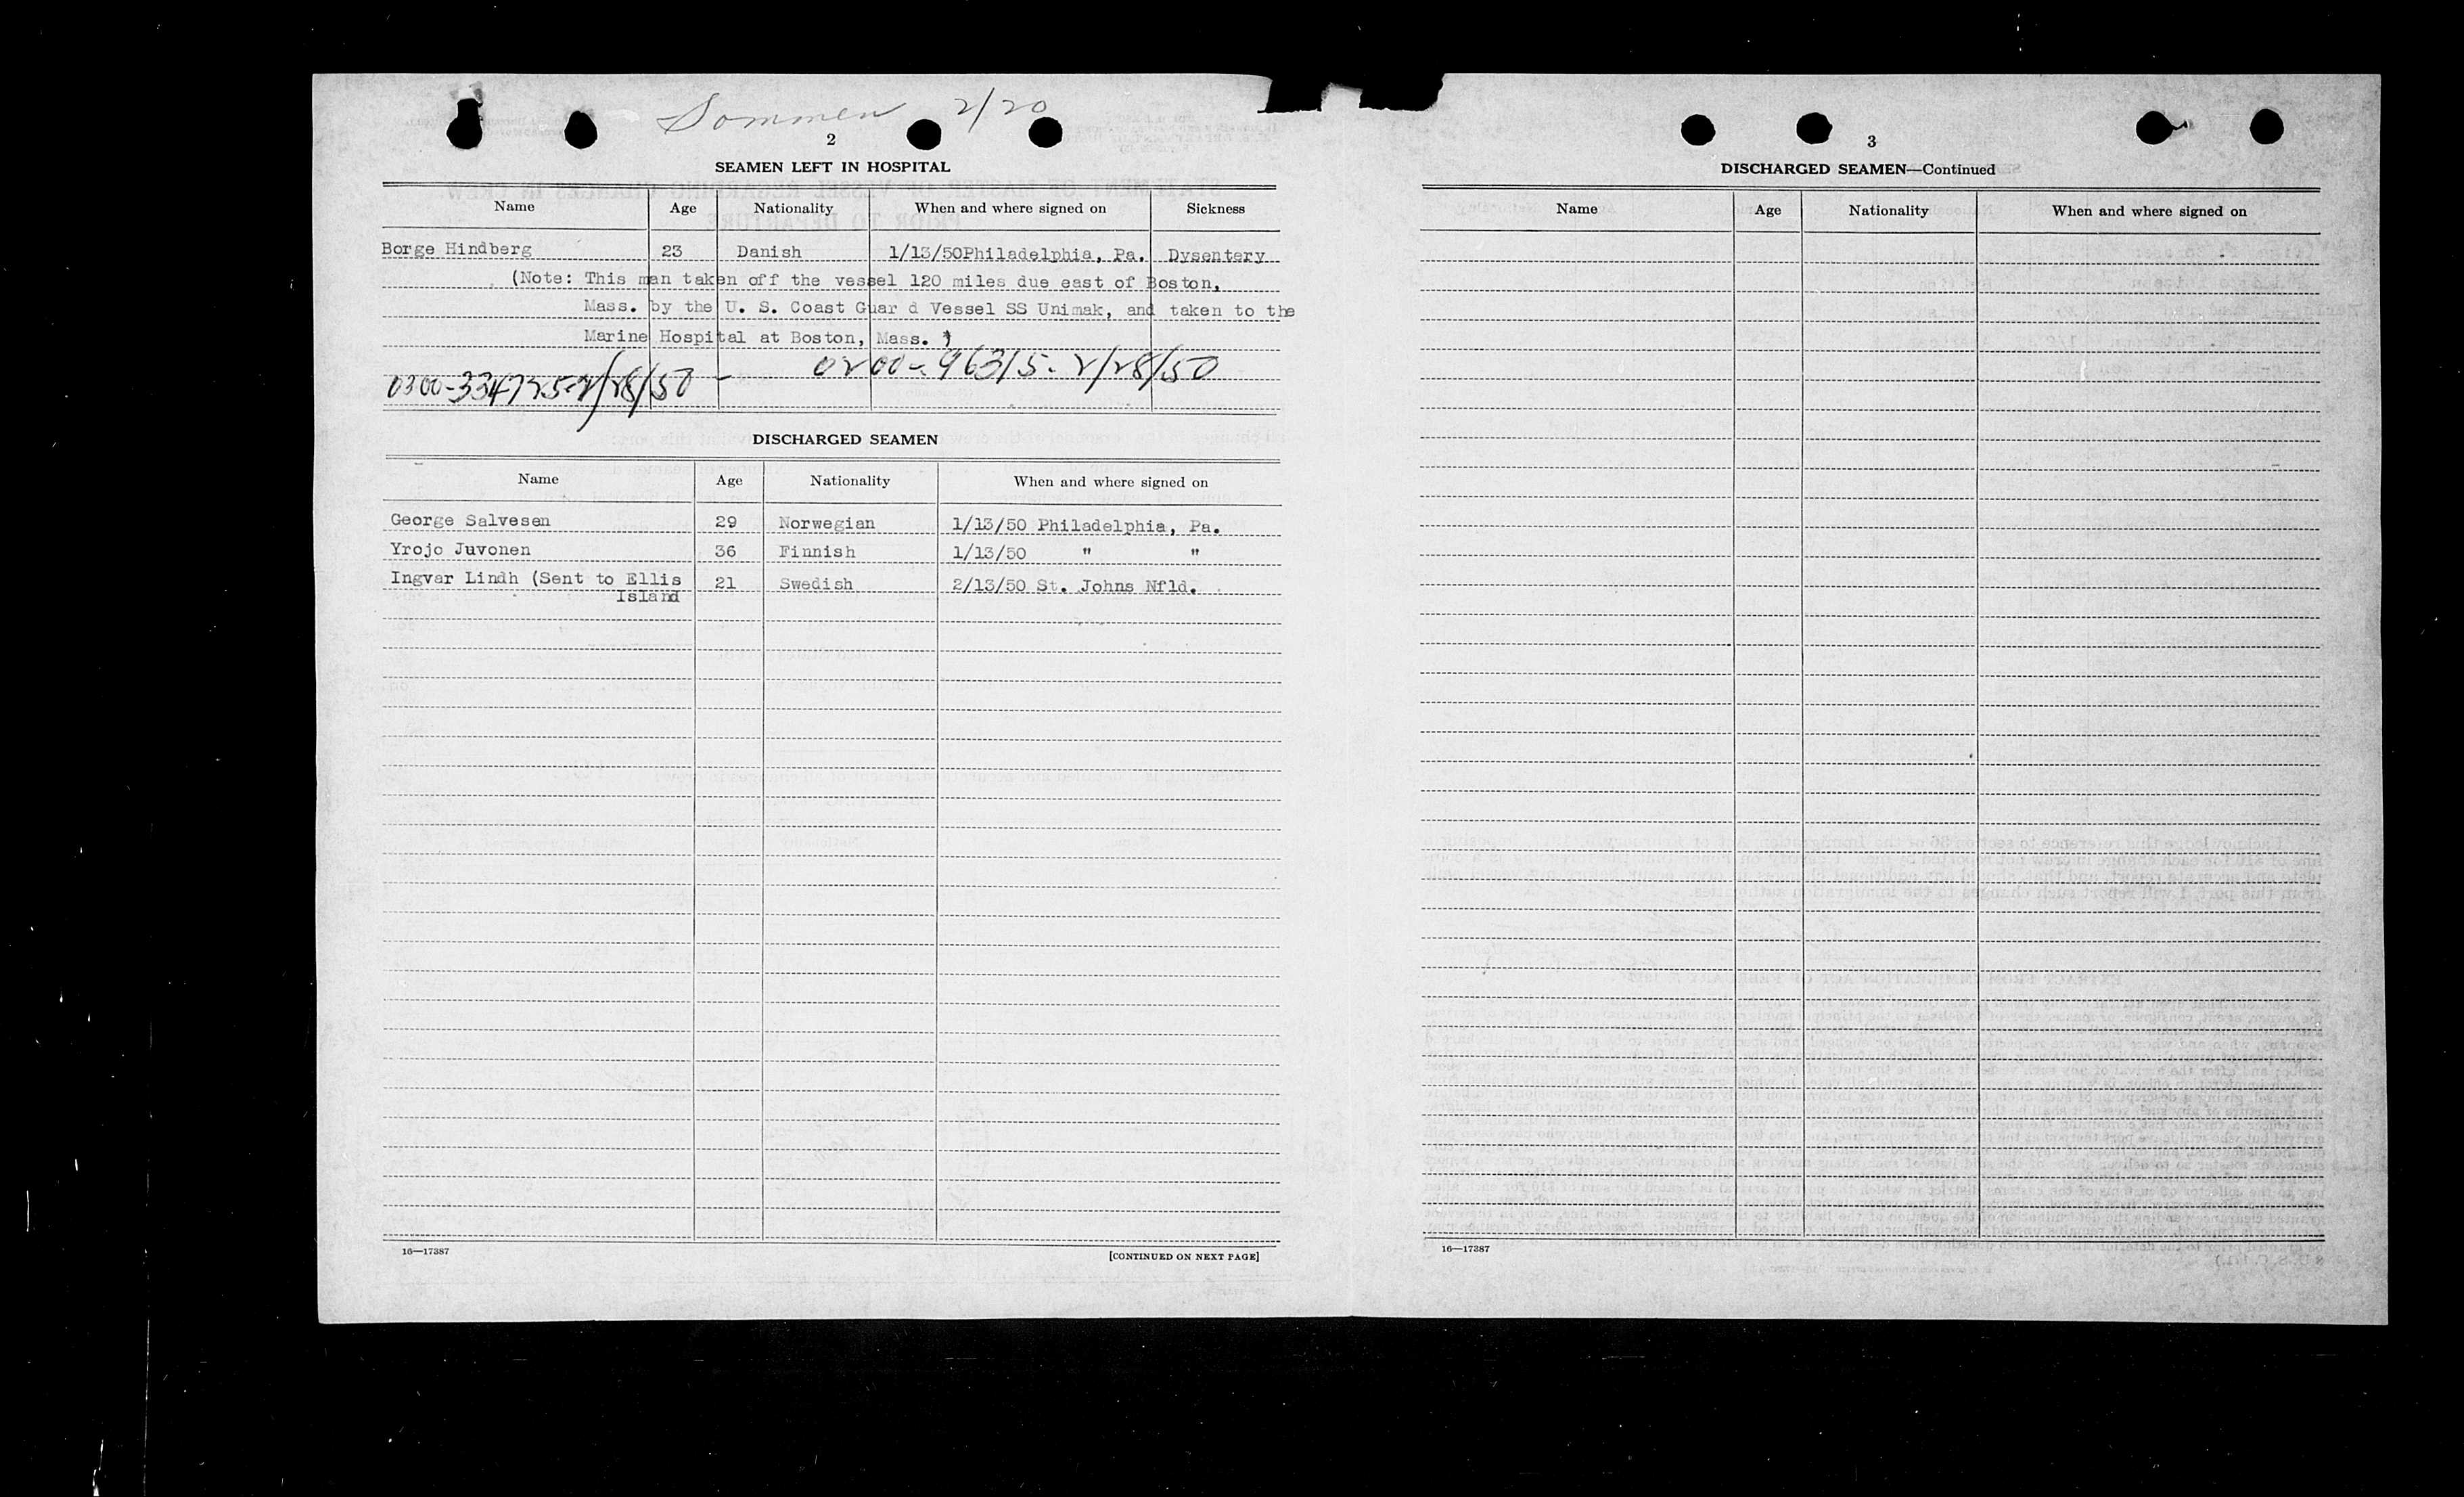 Sommen 2/20
2
SEAMEN LEFT IN HOSPITAL
Name Age Nationality When and where signed on Sickness
Borge Hindberg 23 Danish 1/13/50Philadelphia, Pa. Dysentery
(Note: This man taken off the vessel 120 miles due east of Boston,
Mass. by the U. S. Coast Guar d Vessel SS Unimak, and taken to the
Marine Hospital at Boston, Mass. )
0200-96315-2/28/50
0300-334725-2/28/50 -
DISCHARGED SEAMEN
Name Age Nationality When and where signed on
George Salvesen 29 Norwegian 1/13/50 Philadelphia, Pa.
Yrojo Juvonen 36 Finnish 1/13/50 " "
Ingvar Lindh (Sent to Ellis 21 Swedish 2/13/50 St. Johns Nfld.
Island
16—17387
[CONTINUED ON NEXT PAGE]
3
DISCHARGED SEAMEN—Continued
Name Age Nationality When and where signed on
16—17387